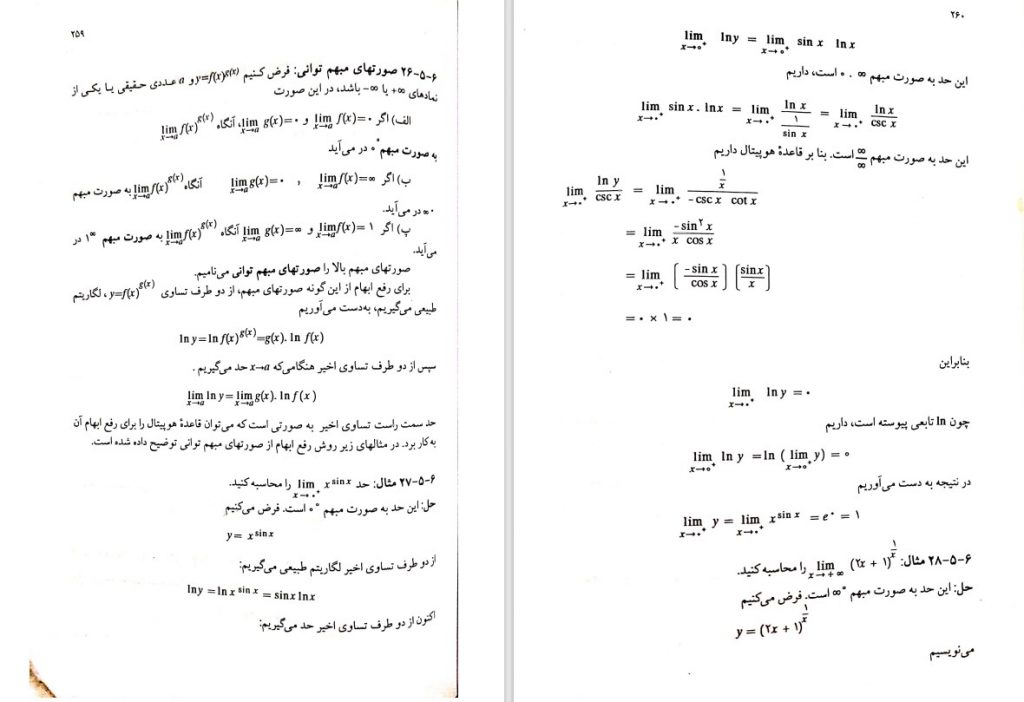 ۲۵۹
۶-۵-۲۶ صورتهای مبهم توانی: فرض کنیم y=f(x)^g(x) و a عددی حقیقی یا یکی از
نمادهای ∞+ یا ∞− باشد، در این صورت
الف) اگر lim x→a f(x)=۰ و lim x→a g(x)=۰، آنگاه lim x→a f(x)^g(x)
به صورت مبهم ۰^۰ در می‌آید
ب) اگر lim x→a f(x)=∞ , lim x→a g(x)=۰ آنگاه lim x→a f(x)^g(x) به صورت مبهم
∞^۰ در می‌آید.
پ) اگر lim x→a f(x)=۱ و lim x→a g(x)=∞ آنگاه lim x→a f(x)^g(x) به صورت مبهم ۱^∞ در
می‌آید.
صورتهای مبهم بالا را صورتهای مبهم توانی می‌نامیم.
برای رفع ابهام از این گونه صورتهای مبهم، از دو طرف تساوی y=f(x)^g(x)، لگاریتم
طبیعی می‌گیریم، به‌دست می‌آوریم
ln y=ln f(x)^g(x)=g(x). ln f(x)
سپس از دو طرف تساوی اخیر هنگامی‌که x→a حد می‌گیریم .
lim x→a ln y= lim x→a g(x). ln f(x)
حد سمت راست تساوی اخیر به صورتی است که می‌توان قاعدهٔ هوپیتال را برای رفع ابهام آن
به‌کار برد. در مثالهای زیر روش رفع ابهام از صورتهای مبهم توانی توضیح داده شده است.
۶-۵-۲۷ مثال: حد lim x→۰⁺ x^sin x را محاسبه کنید.
حل: این حد به صورت مبهم ۰^۰ است. فرض می‌کنیم
y= x^sin x
از دو طرف تساوی اخیر لگاریتم طبیعی می‌گیریم:
lny = ln x^sin x = sinx lnx
اکنون از دو طرف تساوی اخیر حد می‌گیریم:
۲۶۰
lim x→۰⁺ lny = lim x→۰⁺ sin x lnx
این حد به صورت مبهم ∞ . ۰ است، داریم
lim x→۰⁺ sinx . lnx = lim x→۰⁺ ln x / (۱ / sin x) = lim x→۰⁺ lnx / csc x
این حد به صورت مبهم ∞/∞ است. بنا بر قاعدهٔ هوپیتال داریم
lim x→۰⁺ ln y / csc x = lim x→۰⁺ (۱/x) / (-csc x cot x)
= lim x→۰⁺ -sin^۲ x / (x cos x)
= lim x→۰⁺ (-sin x / cos x) (sinx / x)
= ۰ × ۱ = ۰
بنابراین
lim x→۰⁺ lny = ۰
چون ln تابعی پیوسته است، داریم
lim x→۰⁺ ln y = ln ( lim x→۰⁺ y) = ۰
در نتیجه به دست می‌آوریم
lim x→۰⁺ y = lim x→۰⁺ x^sin x = e^۰ = ۱
۶-۵-۲۸ مثال: lim x→+∞ (۲x + ۱)^(۱/x) را محاسبه کنید.
حل: این حد به صورت مبهم ∞^۰ است. فرض می‌کنیم
y = (۲x + ۱)^(۱/x)
می‌نویسیم